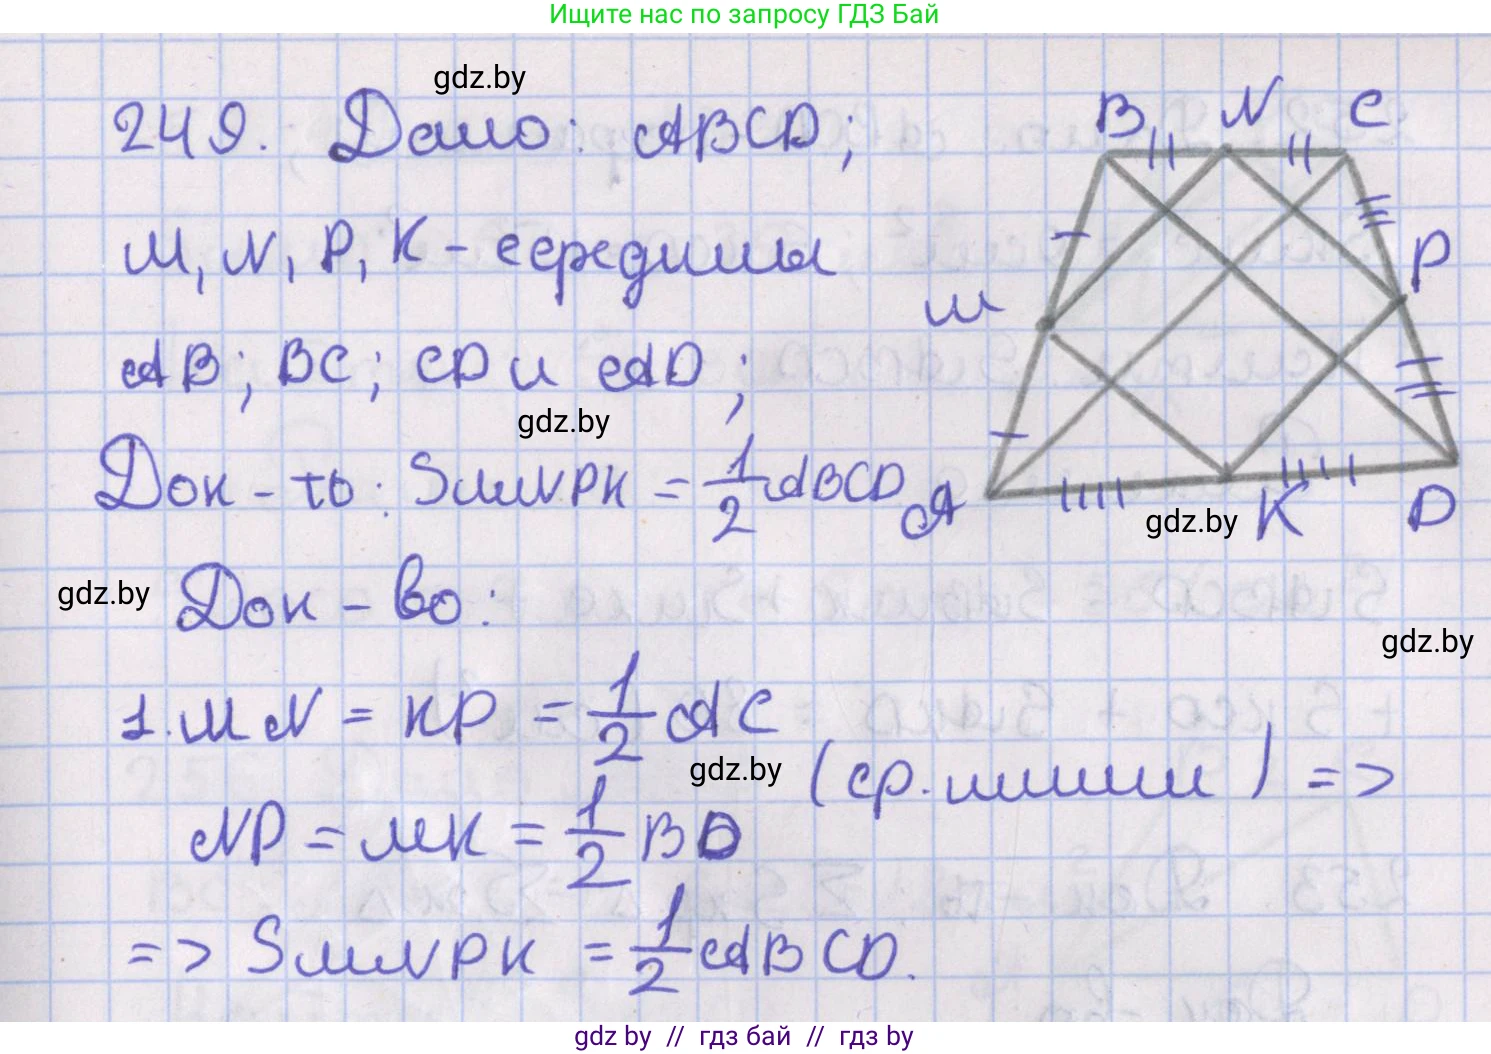 Ищите нас по запросу ГДЗ Бай
gdz.by
249. Дано: ABCD;
B N C
M, N, P, K - середины
P
M
AB; BC; CD и AD;
gdz.by
Док-ть: SMNPK = 1/2 ABCD
A K D
gdz.by
gdz.by
Док-во:
gdz.by
1. MN = KP = 1/2 AC
gdz.by
(ср. линии) =>
NP = MK = 1/2 BD
=> SMNPK = 1/2 ABCD.
gdz.by // гдз бай // гдз by